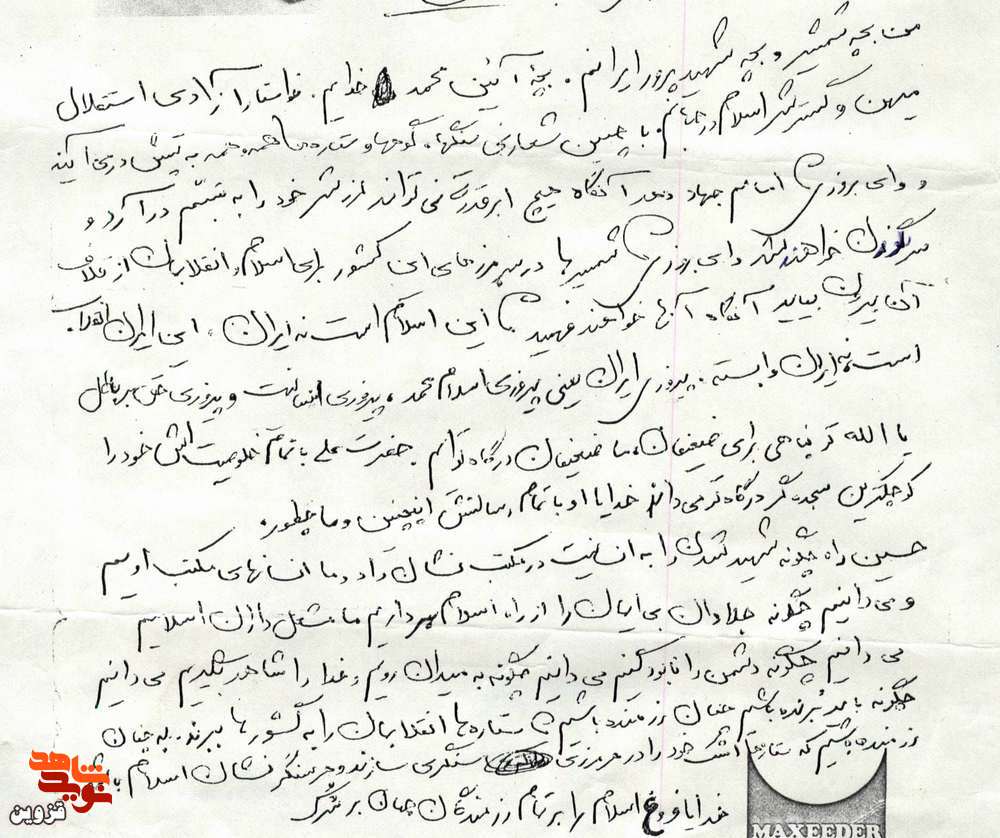 من بچه شمشیر و بچه شهید پرور ایرانم. بچهٔ آئین محمد خدایم. خواستار آزادی استقلال
میهن و گسترش اسلام در جهانم. با چنین شعاری سنگها، کوهها و ستاره‌ها همه و همه به تپش درمی‌آیند
و وای بروزی امامم جهاد دهد آنگاه هیچ ابرقدرتی نمی‌تواند لرزش خود را به تبسّم درآورد و
سرنگون خواهند شد وای بروزی شمشیرها در سر مرزهای این کشور برای اسلام و انقلابمان از غلاف
آن بیرون بیاید آنگاه آنها خواهند فهمید این اسلام است نه ایران، این ایران انقلاب
است، نه ایران وابسته. پیروزی ایران یعنی پیروزی اسلام محمد، پیروزی انسانیت و پیروزی حق بر باطل
یا الله تو پناهی برای ضعیفان، ما ضعیفان درگاه توایم. حضرت علی با تمام خلوصیت‌اش خود را
کوچکترین سجده‌گر درگاه تو می‌داند خدایا او با تمام رسالتش اینچنین و ما چطور.
حسین راه چگونه شهید شدن را به انسانیت در مکتب نشان داد و ما انسانهای مکتب اوییم
و می‌دانیم چگونه جلادان بی‌ایمان را از راه اسلام برداریم ما مشعل داران اسلامیم
می‌دانیم چگونه دشمن را نابود کنیم می‌دانیم چگونه به میدان رویم و خدا را شاهد بگیریم می‌دانیم
چگونه باید بُرنده باشیم چنان رزمنده باشیم ستاره‌ها انقلابمان را به کشورها ببرند. چنان
رزمنده باشیم که ستاره‌ها اشک خود را در هر مرزی سنگری سازند و هر سنگر نشان اسلام باشد
خدایا فروغ اسلام را بر تمام رزمندگان جهان بر
نوید شاهد
قزوین
MAXEEDER